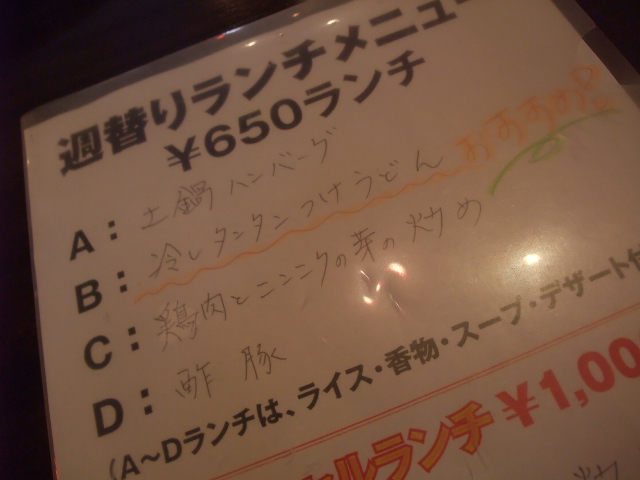 週替りランチメニュー
¥650ランチ
A: 土鍋ハンバーグ
B: 冷しタンタンつけうどん おすすめ!
C: 鶏肉とニンニクの芽の炒め
D: 酢豚
(A〜Dランチは、ライス・香物・スープ・デザート付
ルランチ ¥1,00